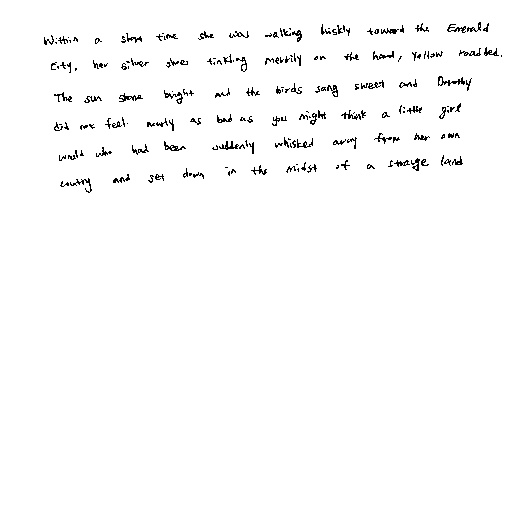 Within a short time she was walking briskly toward the Emerald
City, her silver shoes tinkling merrily on the hard, yellow roadbed.
The sun shone bright and the birds sang sweet and Dorothy
did not feel nearly as bad as you might think a little girl
would who had been suddenly whisked away from her own
coutry and set down in the midst of a strange land